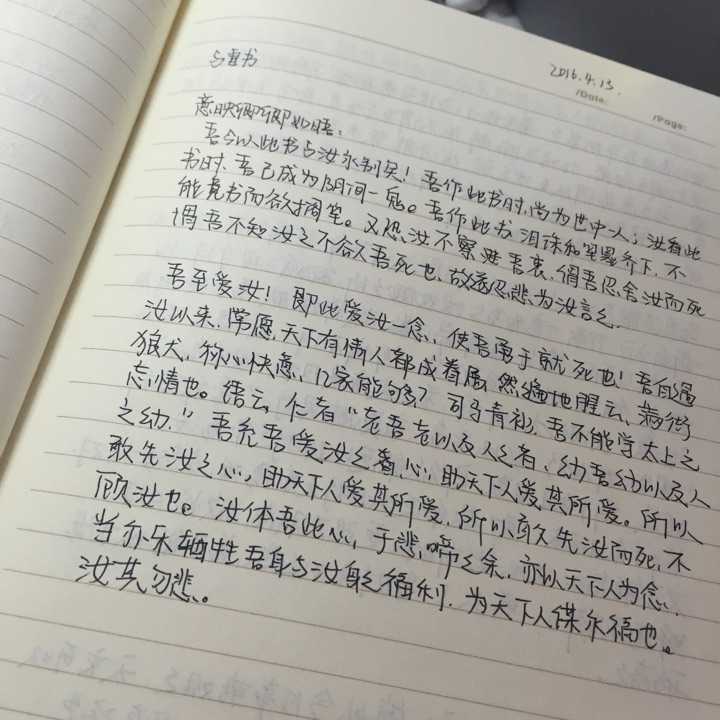 与妻书
2016.4.13.
/Date: /Page:
意映卿卿如晤:
吾今以此书与汝永别矣!吾作此书时,尚为世中人;汝看此
书时,吾已成为阴间一鬼。吾作此书泪珠和笔墨齐下,不
能竟书而欲搁笔。又恐汝不察吾衷,谓吾忍舍汝而死
谓吾不知汝之不欲吾死也,故遂忍悲为汝言之.
吾至爱汝!即此爱汝一念,使吾勇于就死也!吾自遇
汝以来,常愿天下有情人都成眷属,然遍地腥云,满街
狼犬,称心快意,几家能够?司马青衫,吾不能学太上之
忘情也。语云,仁者"老吾老以及人之老、幼吾幼以及人
之幼."吾充吾爱汝之心,助天下人爱其所爱。所以
敢先汝之心,助天下人爱其所爱,所以敢先汝而死,不
顾汝也。汝体吾此心,于悲啼之余,亦以天下人为念,
当亦乐牺牲吾身与汝身之福利,为天下人谋永福也。
汝其勿悲。